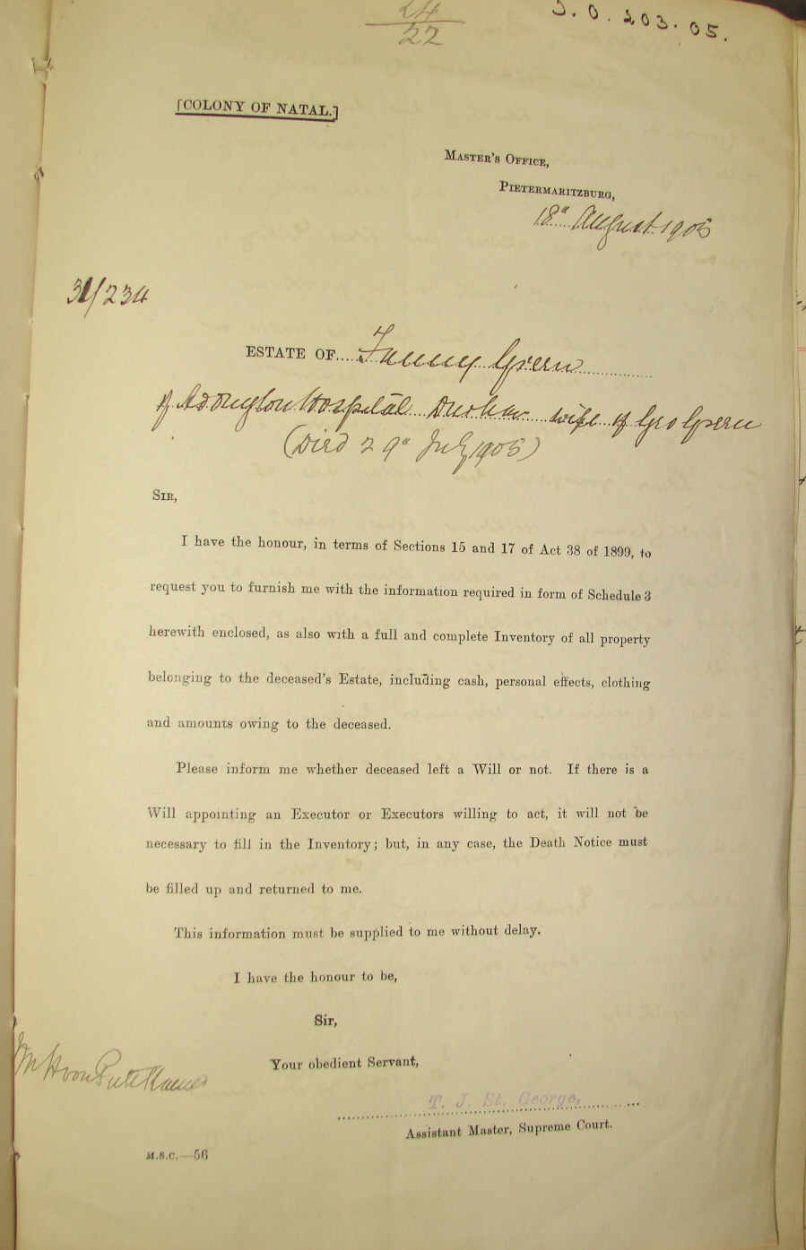 24
22
S.O. 203.05.
[COLONY OF NATAL.]
MASTER'S OFFICE,
PIETERMARITZBURG,
18th August 1905
31/234
ESTATE OF Fanny Green
of Addington Hospital Durban wife of Geo Green
(Died 29th July 1905)
SIR,
I have the honour, in terms of Sections 15 and 17 of Act 38 of 1899, to
request you to furnish me with the information required in form of Schedule 3
herewith enclosed, as also with a full and complete Inventory of all property
belonging to the deceased's Estate, including cash, personal effects, clothing
and amounts owing to the deceased.
Please inform me whether deceased left a Will or not. If there is a
Will appointing an Executor or Executors willing to act, it will not be
necessary to fill in the Inventory; but, in any case, the Death Notice must
be filled up and returned to me.
This information must be supplied to me without delay.
I have the honour to be,
Sir,
Your obedient Servant,
T. J. St. George,
Assistant Master, Supreme Court.
M.S.C.—56